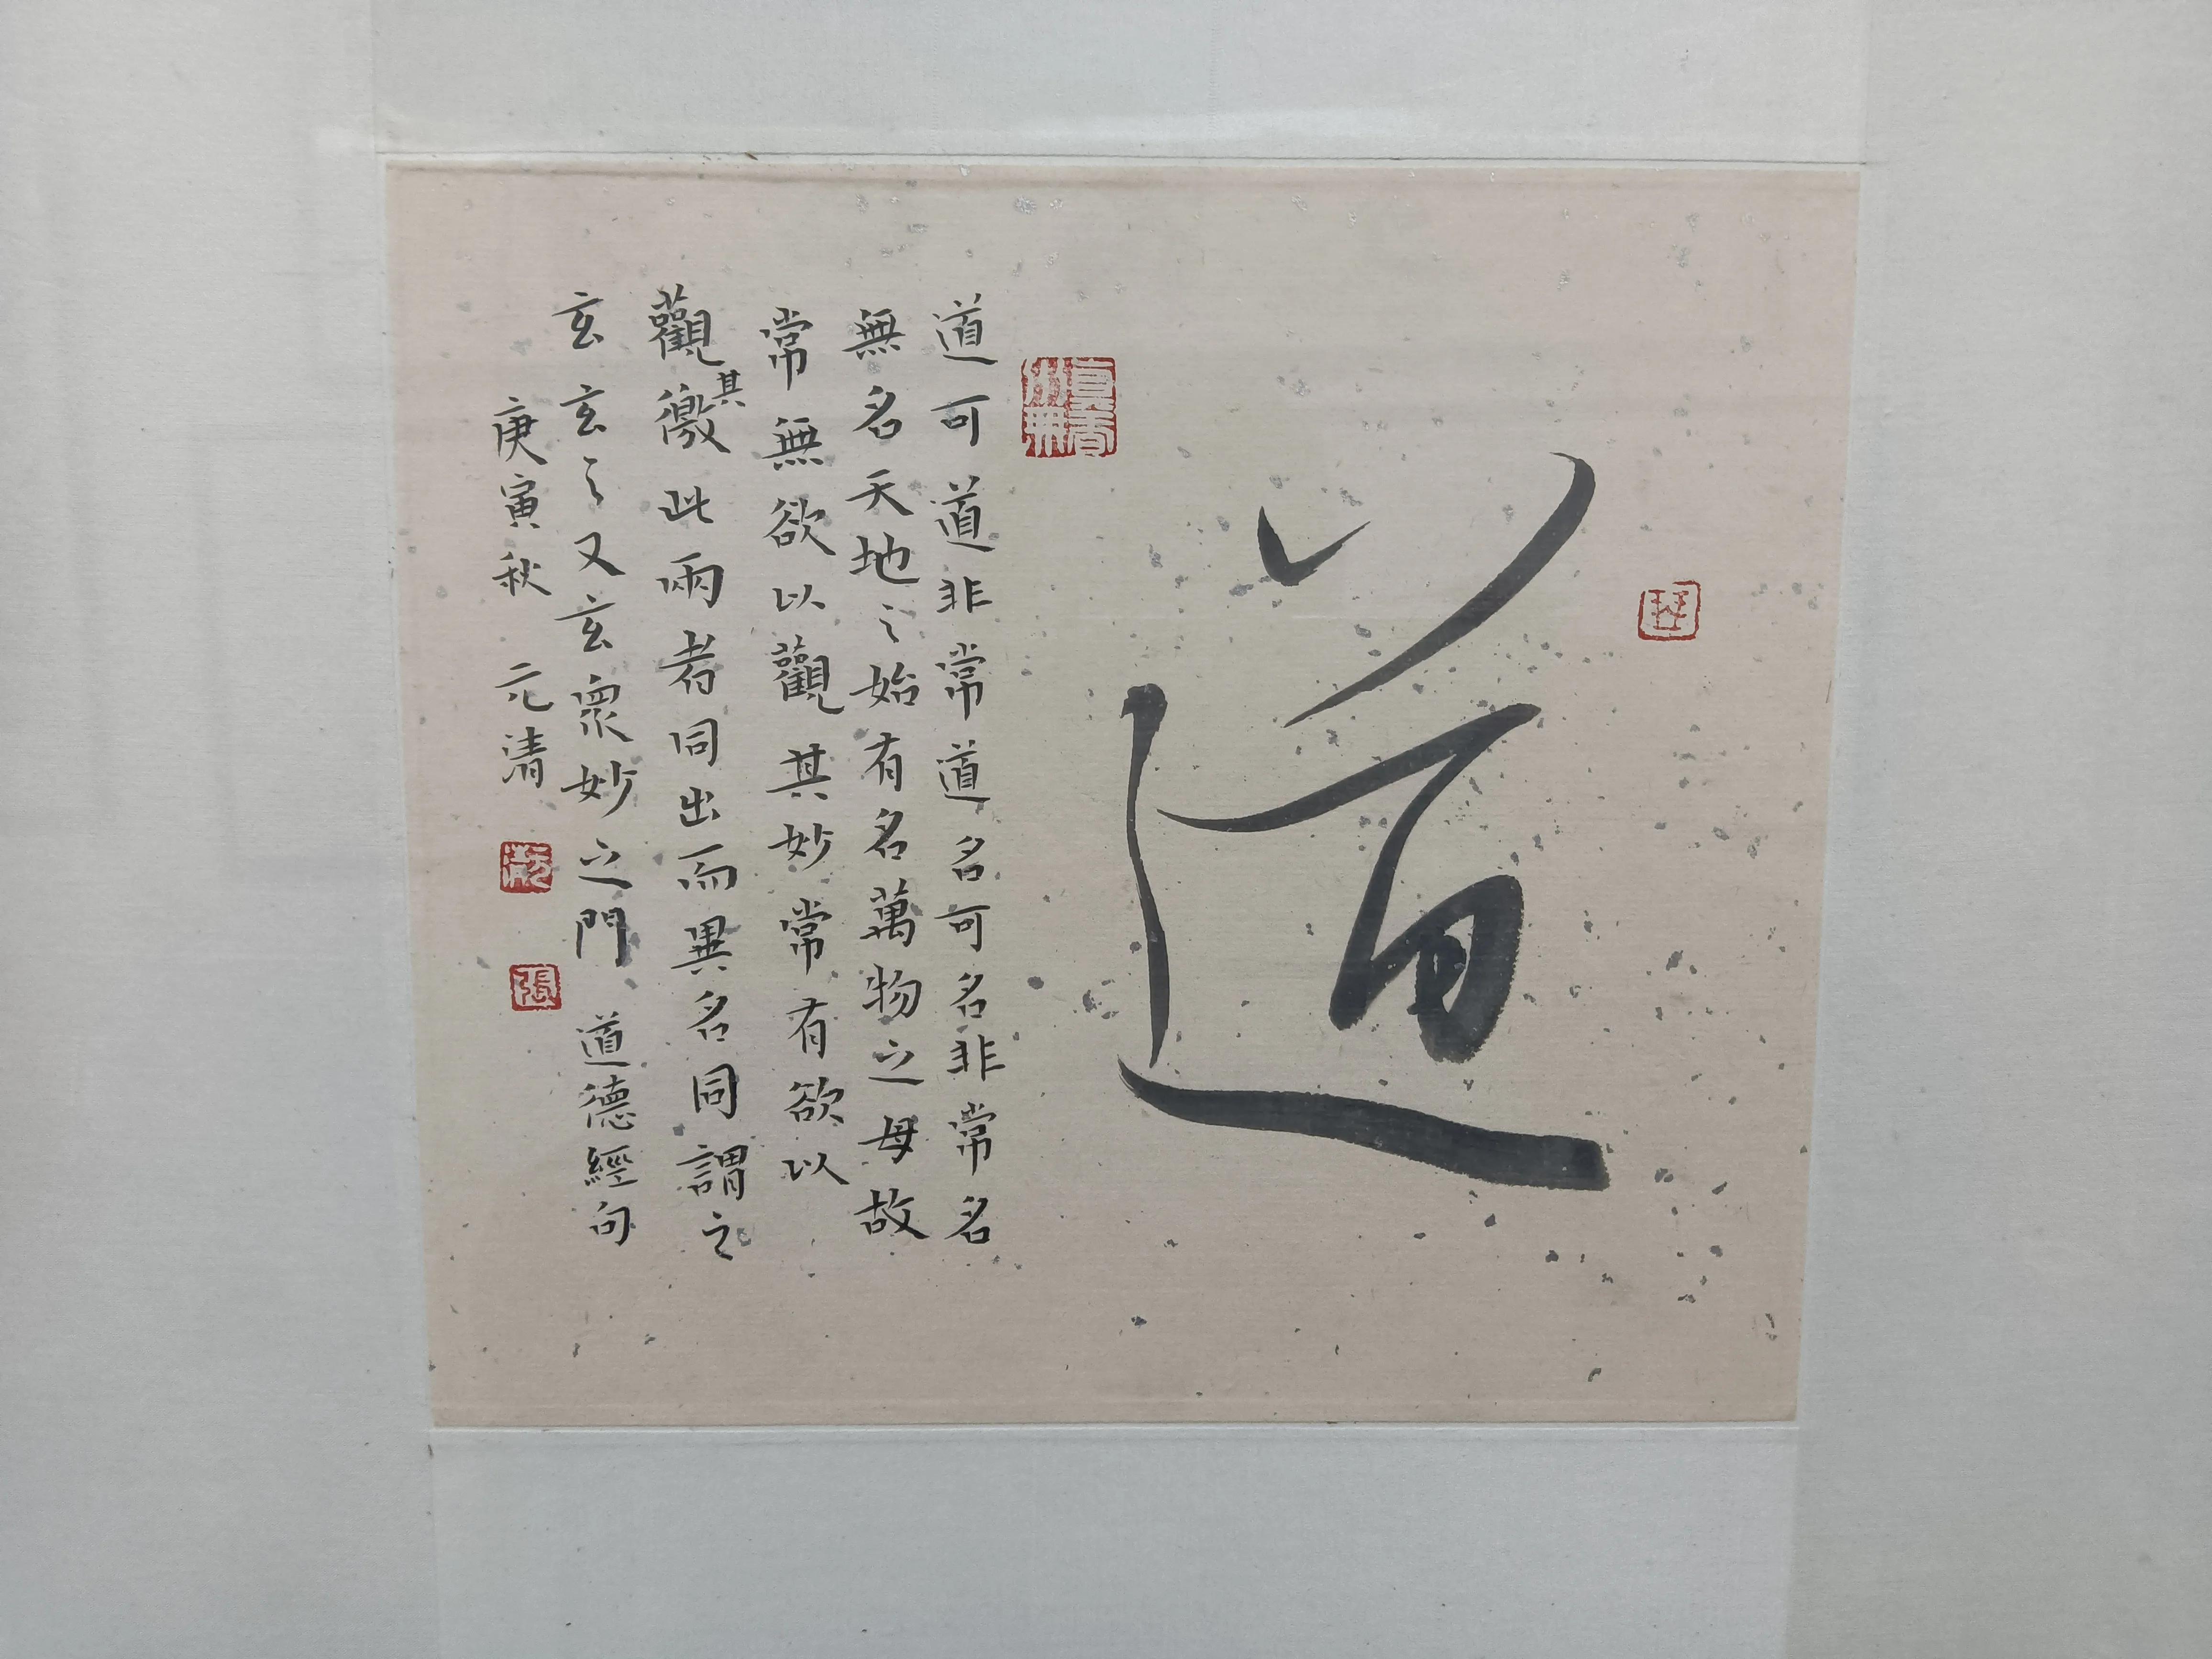 道
道可道非常道名可名非常名
無名天地之始有名萬物之母故
常無欲以觀其妙常有欲以
觀其徼此兩者同出而異名同謂之
玄玄之又玄衆妙之門 道德經句
庚寅秋 元清
張